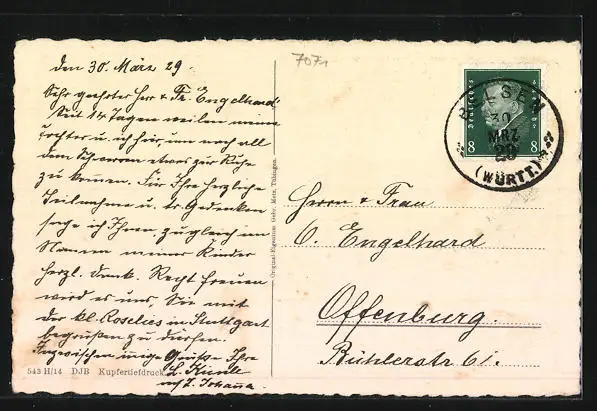 den 30. März 29.
Sehr geehrter Herr & Fr. Engelhard!
Seit 14 Tagen weilen meine
Tochter u. ich hier, um nach all
dem Schweren etwas zur Ruhe
zu kommen. Für Ihre herzliche
Teilnahme u. Gedenken
sage ich Ihnen, zugleich im
Namen meiner Kinder
herzl. Dank. Recht freuen
wird es uns, Sie mit
der kl. Roselies in Stuttgart
begrüßen zu dürfen.
Inzwischen innige Grüße Ihre
L.
u. T. Johanna.
543 H/14 DJB Kupfertiefdruck
Original-Eigentum Gebr. Metz, Tübingen.
7071
8 8
SEN
30.
MRZ
29
(WÜRTT.)
Herrn & Frau
O. Engelhard
Offenburg.
Bühlerstr. 61.